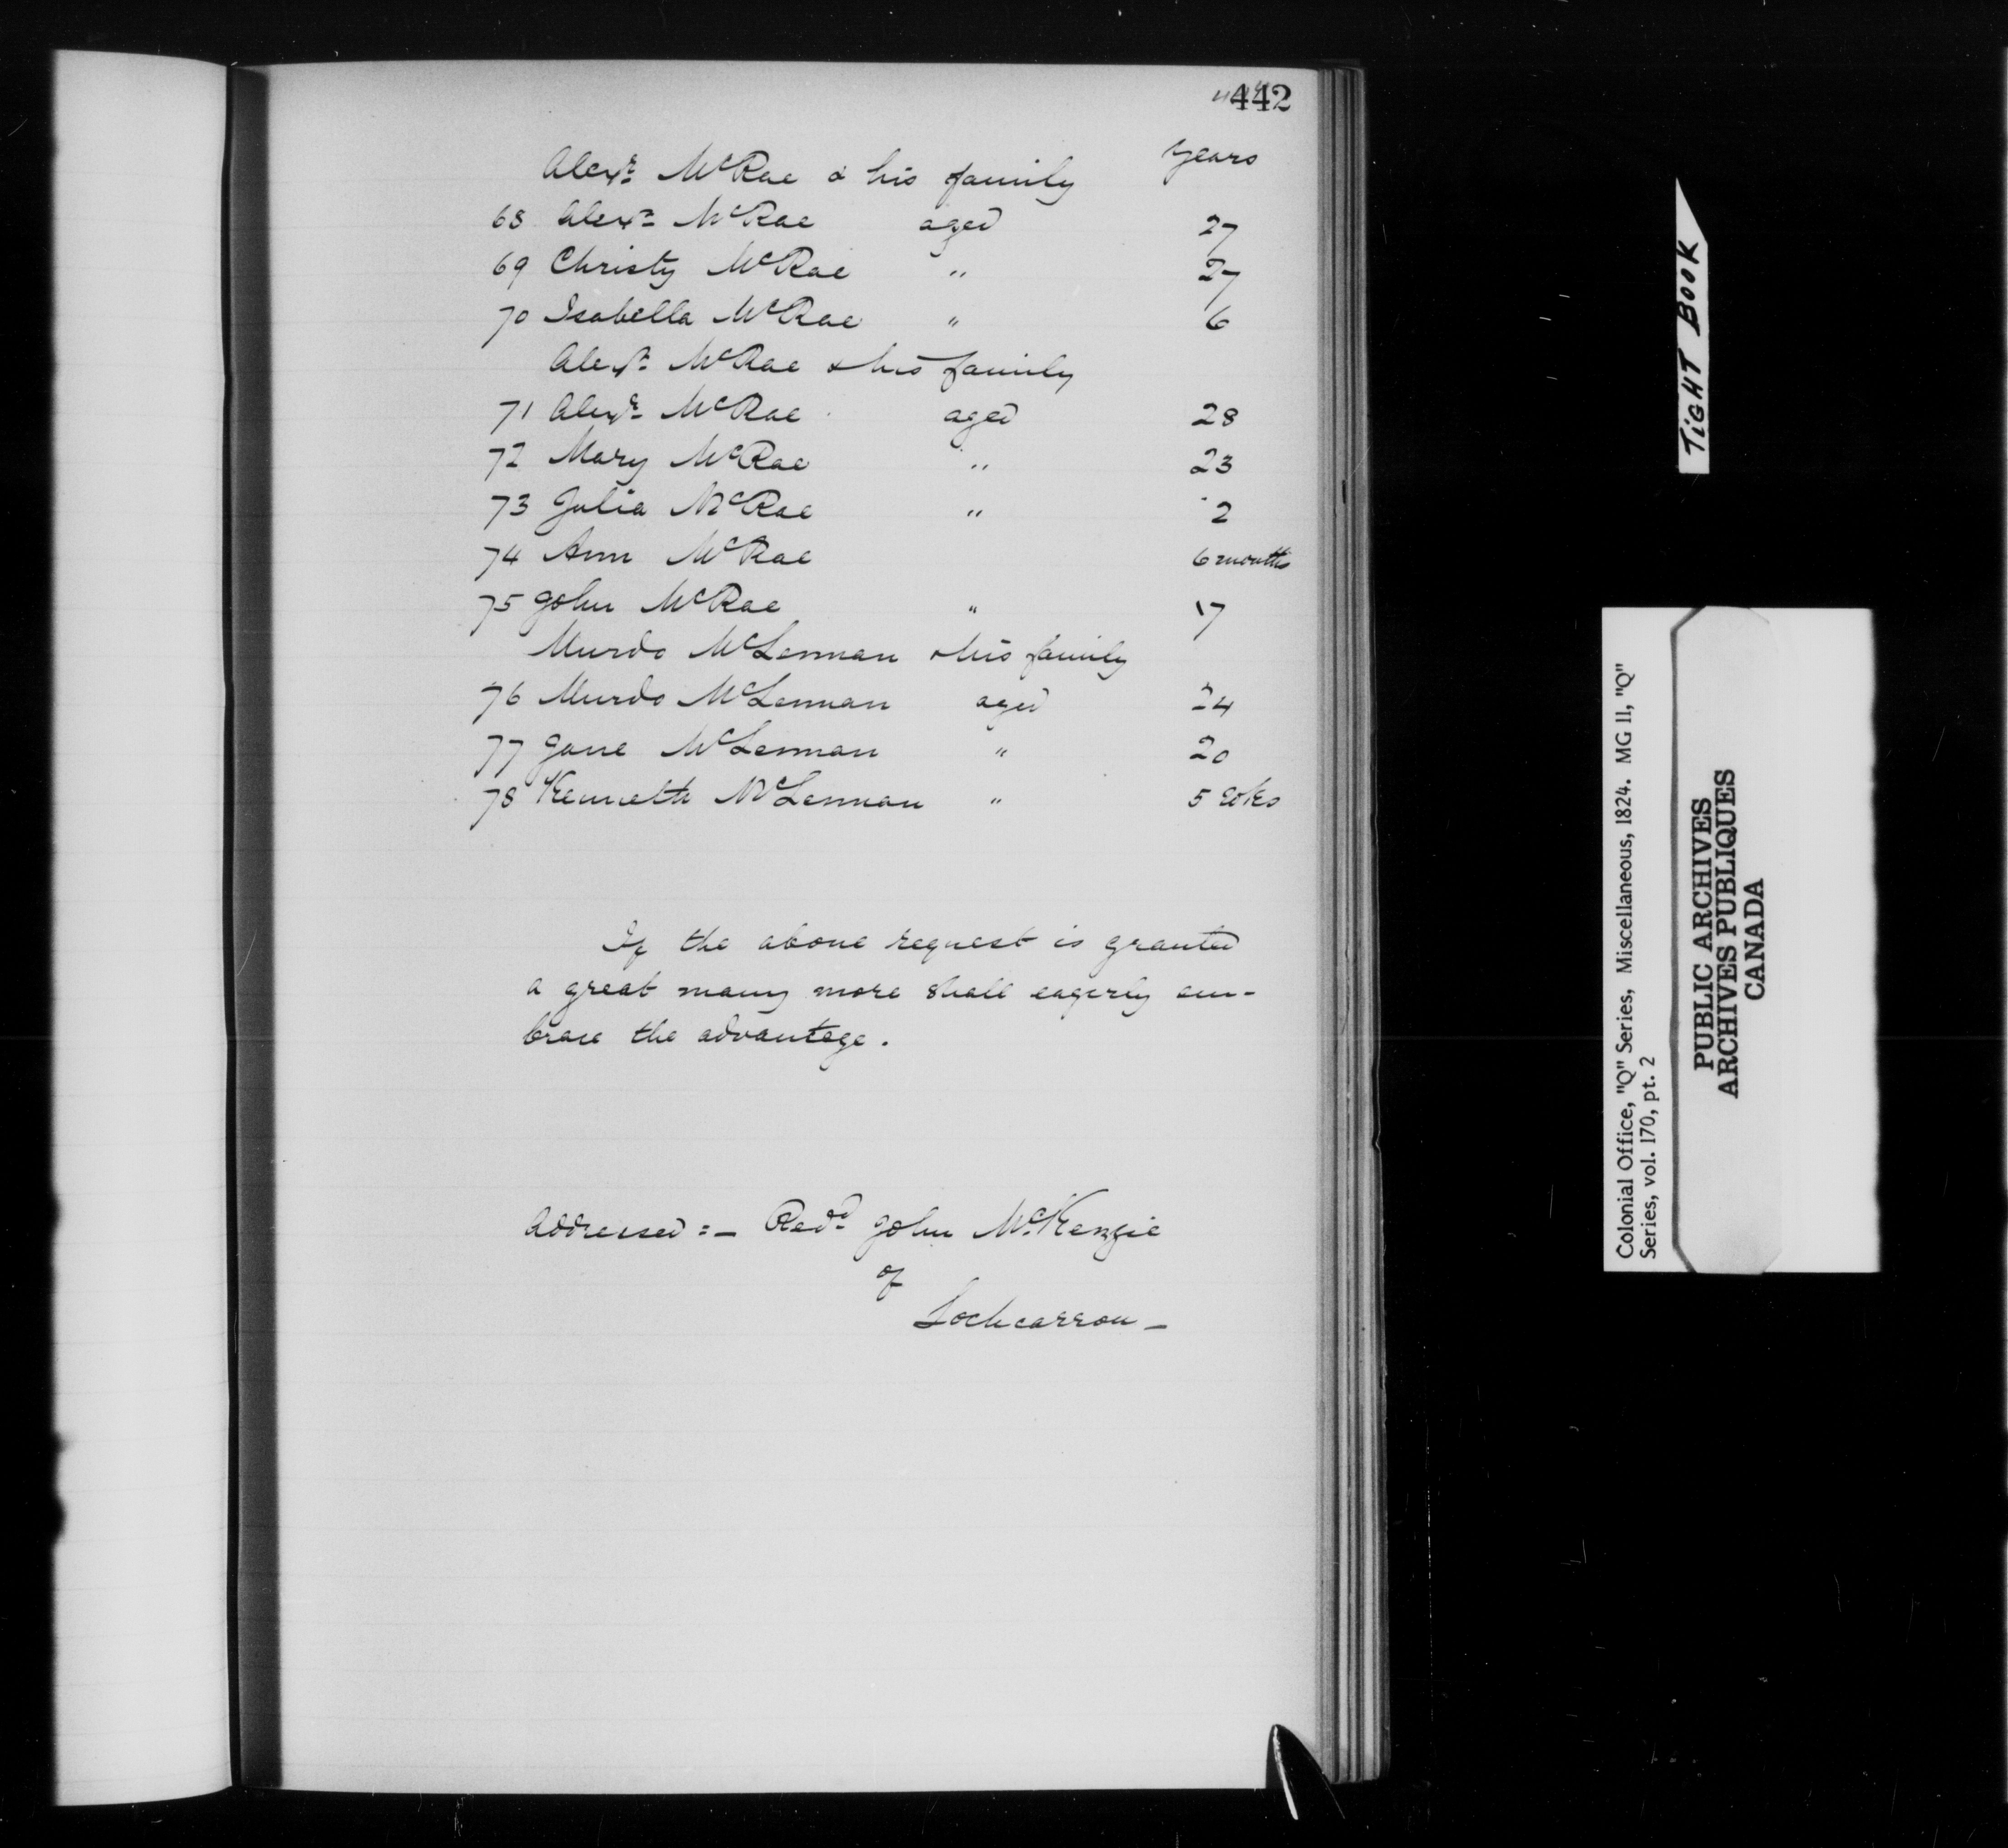 442
years
Alexr McRae & his family
68 Alexr McRae aged 27
69 Christy McRae " 27
70 Isabella McRae " 6
Alexr McRae & his family
71 Alexr McRae aged 28
72 Mary McRae " 23
73 Julia McRae " 2
74 Ann McRae 6 months
75 John McRae " 17
Murdo McLennan & his family
76 Murdo McLennan aged 24
77 Jane McLennan " 20
78 Kenneth McLennan " 5 wks
If the above request is granted
a great many more shall eagerly em-
brace the advantage.
Addressed :- Revd John McKenzie
of
Lochcarron -
TIGHT BOOK
Colonial Office, "Q" Series, Miscellaneous, 1824. MG 11, "Q"
Series, vol. 170, pt. 2
PUBLIC ARCHIVES
ARCHIVES PUBLIQUES
CANADA